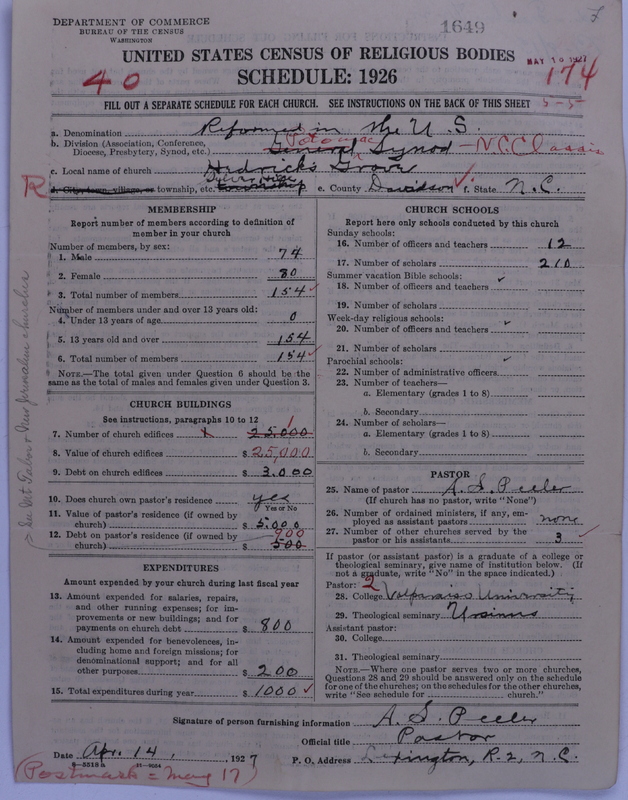 DEPARTMENT OF COMMERCE
BUREAU OF THE CENSUS
WASHINGTON
1649
7
UNITED STATES CENSUS OF RELIGIOUS BODIES
MAY 10 1927
SCHEDULE: 1926
40
174
FILL OUT A SEPARATE SCHEDULE FOR EACH CHURCH. SEE INSTRUCTIONS ON THE BACK OF THIS SHEET
5-5
a. Denomination Reformed in the U.S.
b. Division (Association, Conference, Diocese, Presbytery, Synod, etc.) General Potomac Synod - N.C. Classis
c. Local name of church Hedricks Grove
R
d. City, town, village, or township, etc. Silver Hill Township e. County Davidson f. State N.C.
MEMBERSHIP
Report number of members according to definition of
member in your church
Number of members, by sex:
1. Male 74
2. Female 80
3. Total number of members 154
Number of members under and over 13 years old:
4. Under 13 years of age 0
5. 13 years old and over 154
6. Total number of members 154
NOTE.—The total given under Question 6 should be the
same as the total of males and females given under Question 3.
CHURCH BUILDINGS
See instructions, paragraphs 10 to 12
7. Number of church edifices 25,000 1
8. Value of church edifices $ 25,000
9. Debt on church edifices $ 3.000
10. Does church own pastor's residence yes
Yes or No
11. Value of pastor's residence (if owned by
church) $ 5.000
12. Debt on pastor's residence (if owned by
church) $ 500 900
EXPENDITURES
Amount expended by your church during last fiscal year
13. Amount expended for salaries, repairs,
and other running expenses; for im-
provements or new buildings; and for
payments on church debt $ 800
14. Amount expended for benevolences, in-
cluding home and foreign missions; for
denominational support; and for all
other purposes $ 200
15. Total expenditures during year $ 1000
See Mt Tabor & New Jerusalem churches
CHURCH SCHOOLS
Report here only schools conducted by this church
Sunday schools:
16. Number of officers and teachers 12
17. Number of scholars 210
Summer vacation Bible schools:
18. Number of officers and teachers
19. Number of scholars
Week-day religious schools:
20. Number of officers and teachers
21. Number of scholars
Parochial schools:
22. Number of administrative officers
23. Number of teachers—
a. Elementary (grades 1 to 8)
b. Secondary
24. Number of scholars—
a. Elementary (grades 1 to 8)
b. Secondary
PASTOR
25. Name of pastor A. S. Peeler
(If church has no pastor, write "None")
26. Number of ordained ministers, if any, em-
ployed as assistant pastors none
27. Number of other churches served by the
pastor or his assistants 3
If pastor (or assistant pastor) is a graduate of a college or
theological seminary, give name of institution below. (If
not a graduate, write "No" in the space indicated.)
Pastor: 2
28. College Valparaiso University
29. Theological seminary Ursinus
Assistant pastor:
30. College
31. Theological seminary
NOTE.—Where one pastor serves two or more churches,
Questions 28 and 29 should be answered only on the schedule
for one of the churches; on the schedules for the other churches,
write "See schedule for church."
Signature of person furnishing information A. S. Peeler
Official title Pastor
Date Apr. 14, 1927
P. O. Address Lexington, R-2, N.C.
(Postmark = May 17)